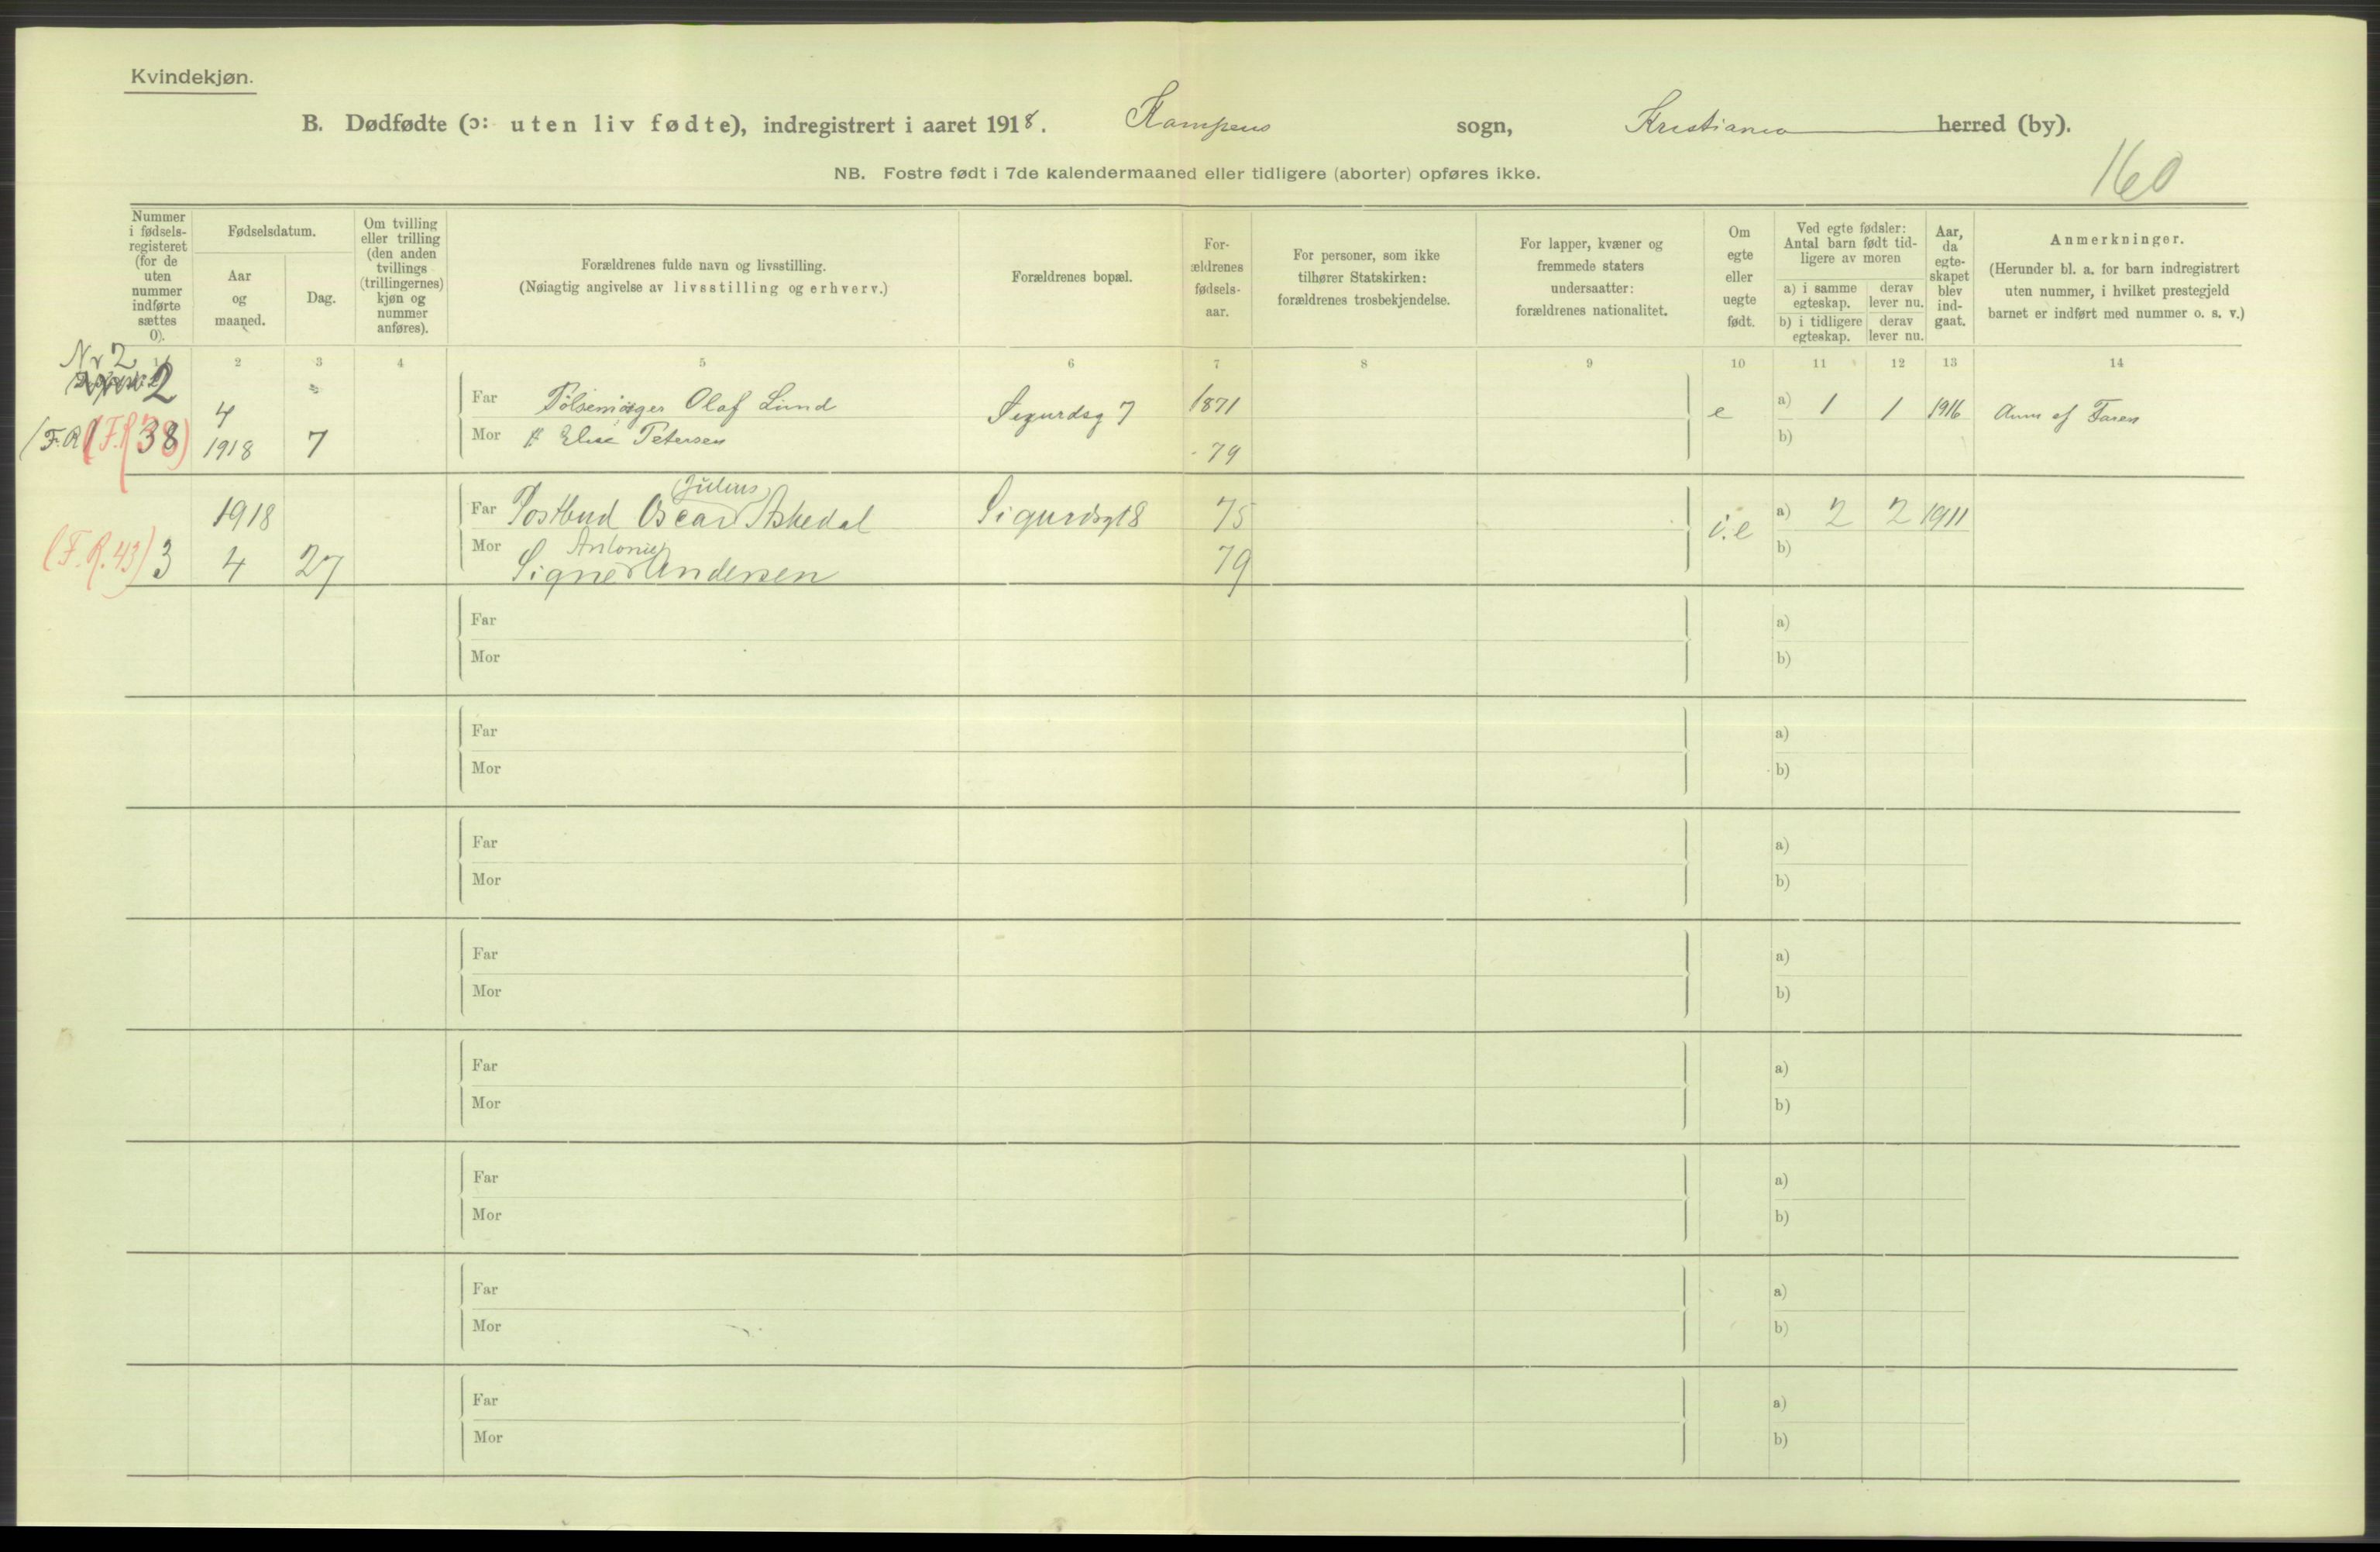 Kvindekjøn.
B. Dødfødte (ɔ: uten liv fødte), indregistrert i aaret 1918. Kampens sogn, Kristiania herred (by).
NB. Fostre født i 7de kalendermaaned eller tidligere (aborter) opføres ikke.
160
Nummer i fødsels-registeret (for de uten nummer indførte sættes 0).
Fødselsdatum.
Aar og maaned.
Dag.
Om tvilling eller trilling (den anden tvillings (trillingernes) kjøn og nummer anføres).
Forældrenes fulde navn og livsstilling.
(Nøiagtig angivelse av livsstilling og erhverv.)
Forældrenes bopæl.
For-ældrenes fødsels-aar.
For personer, som ikke tilhører Statskirken: forældrenes trosbekjendelse.
For lapper, kvæner og fremmede staters undersaatter: forældrenes nationalitet.
Om egte eller uegte født.
Ved egte fødsler: Antal barn født tid-ligere av moren
a) i samme egteskap. derav lever nu.
b) i tidligere egteskap. derav lever nu.
Aar, da egte-skapet blev ind-gaat.
Anmerkninger.
(Herunder bl. a. for barn indregistrert uten nummer, i hvilket prestegjeld barnet er indført med nummer o. s. v.)
1 2 3 4 5 6 7 8 9 10 11 12 13 14
Nr 2
2
(F.R. (F.R 38) 4 1918 7
Far Pølsemager Olaf Lund Sigurdsg 7 1871 e a) 1 1 1916 Anm af Faren
Mor Elise Petersen - 79 b)
(F.R. 43) 3 1918 4 27
Julius
Far Postbud Oscar Askedal Sigurdsgt 8 75 i.e a) 2 2 1911
Antonie
Mor Signe Andersen 79 b)
Far a)
Mor b)
Far a)
Mor b)
Far a)
Mor b)
Far a)
Mor b)
Far a)
Mor b)
Far a)
Mor b)
Far a)
Mor b)
Far a)
Mor b)